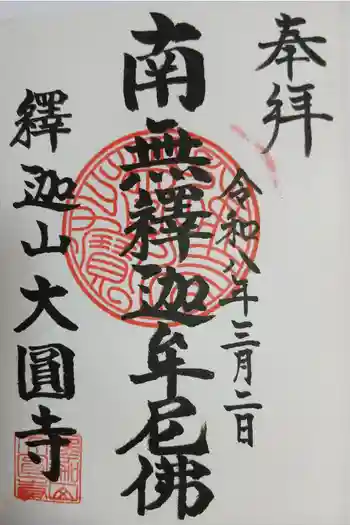 奉拝
令和八年三月二日
南無釋迦牟尼佛
釋迦山大圓寺